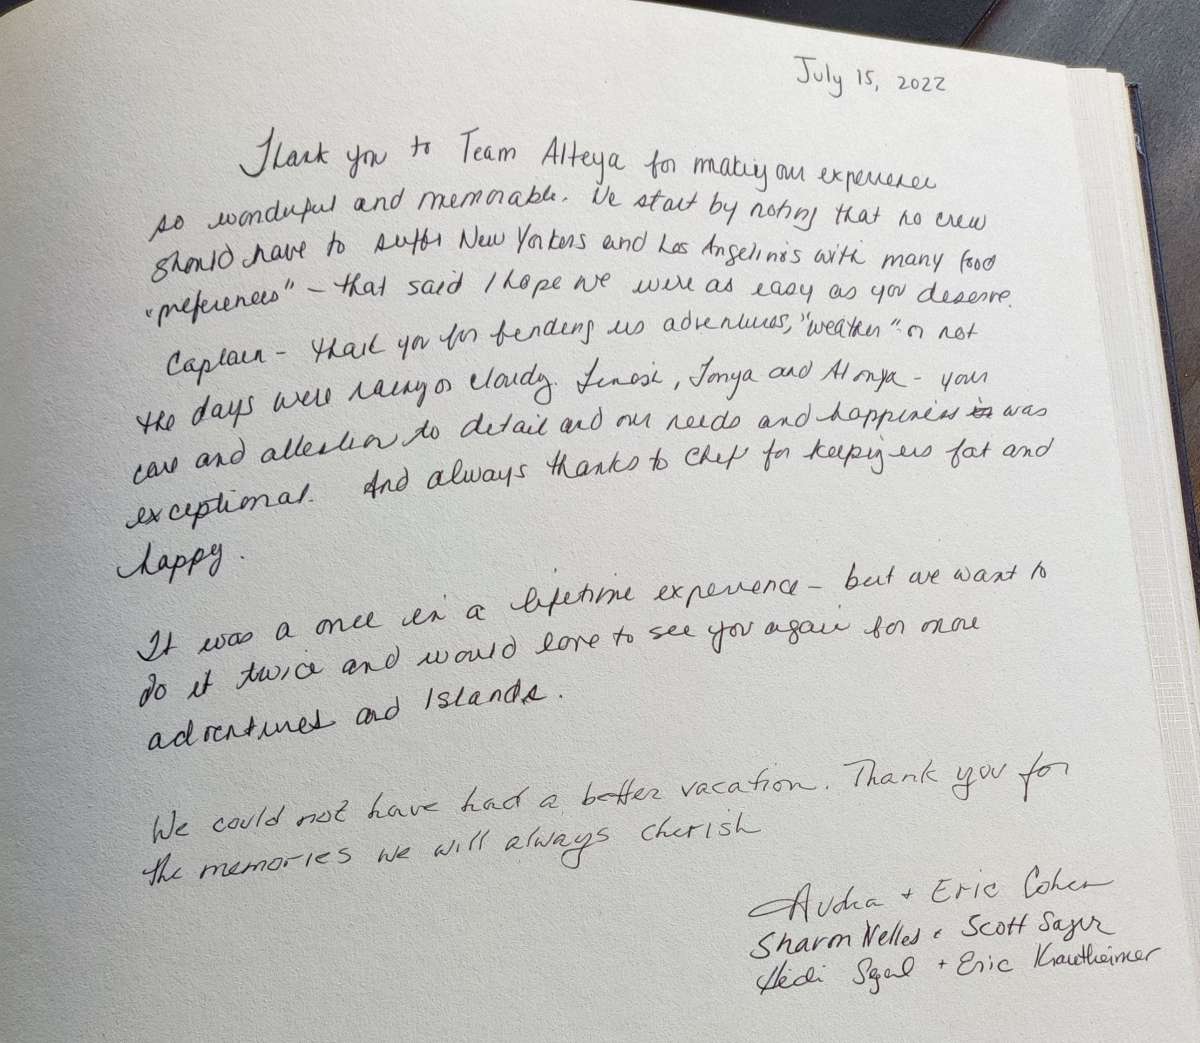 July 15, 2022
Thank you to Team Alteya for making our experience
so wonderful and memorable. We start by noting that no crew
should have to suffer New Yorkers and Los Angelinos with many food
"preferences" - that said I hope we were as easy as you deserve.
Captain - thank you for finding us adventures, "weather" or not
the days were rainy or cloudy. Tonya and Alonya - your
care and attention to detail and our needs and happiness was
exceptional. And always thanks to Chef for keeping us fat and
happy.
It was a once in a lifetime experience - but we want to
do it twice and would love to see you again for more
adventures and Islands.
We could not have had a better vacation. Thank you for
the memories we will always cherish
Audra + Eric Cohen
Sharon Nelles & Scott Sayer
Heidi Segal + Eric Krautheimer